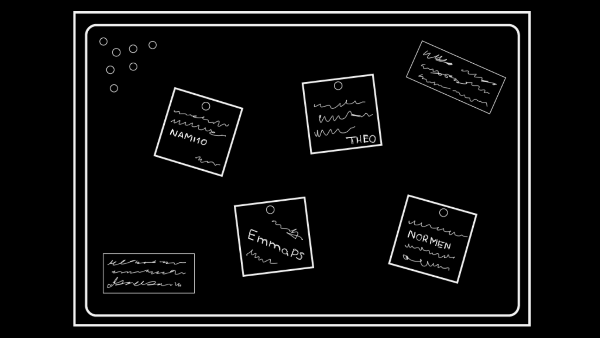 NAMI10
THEO
EmmaPS
NORMEN